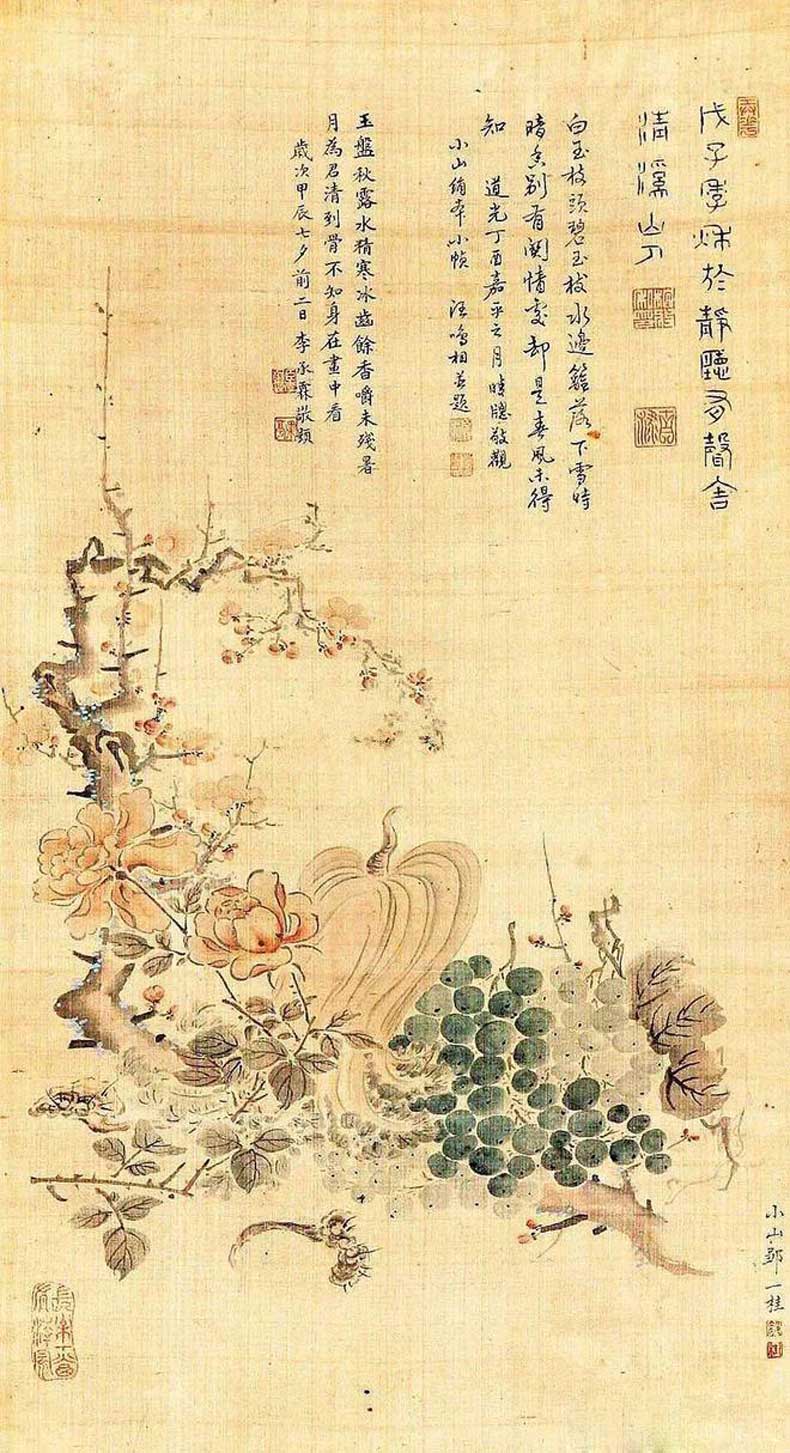 戊子季秋於靜聽聲舍
清溪山人
白玉枝頭碧玉枝水邊籬落下雪時
暗香別有關情處却是春風未得
知 道光丁酉嘉平之月晴牕敬觀
小山絹本小幀 汪鳴相並題
玉盤秋露水精寒冰齒餘香嚼未殘暑
月為君清到骨不知身在畫中看
歲次甲辰七夕前二日李承霖敬題
小山鄒一桂